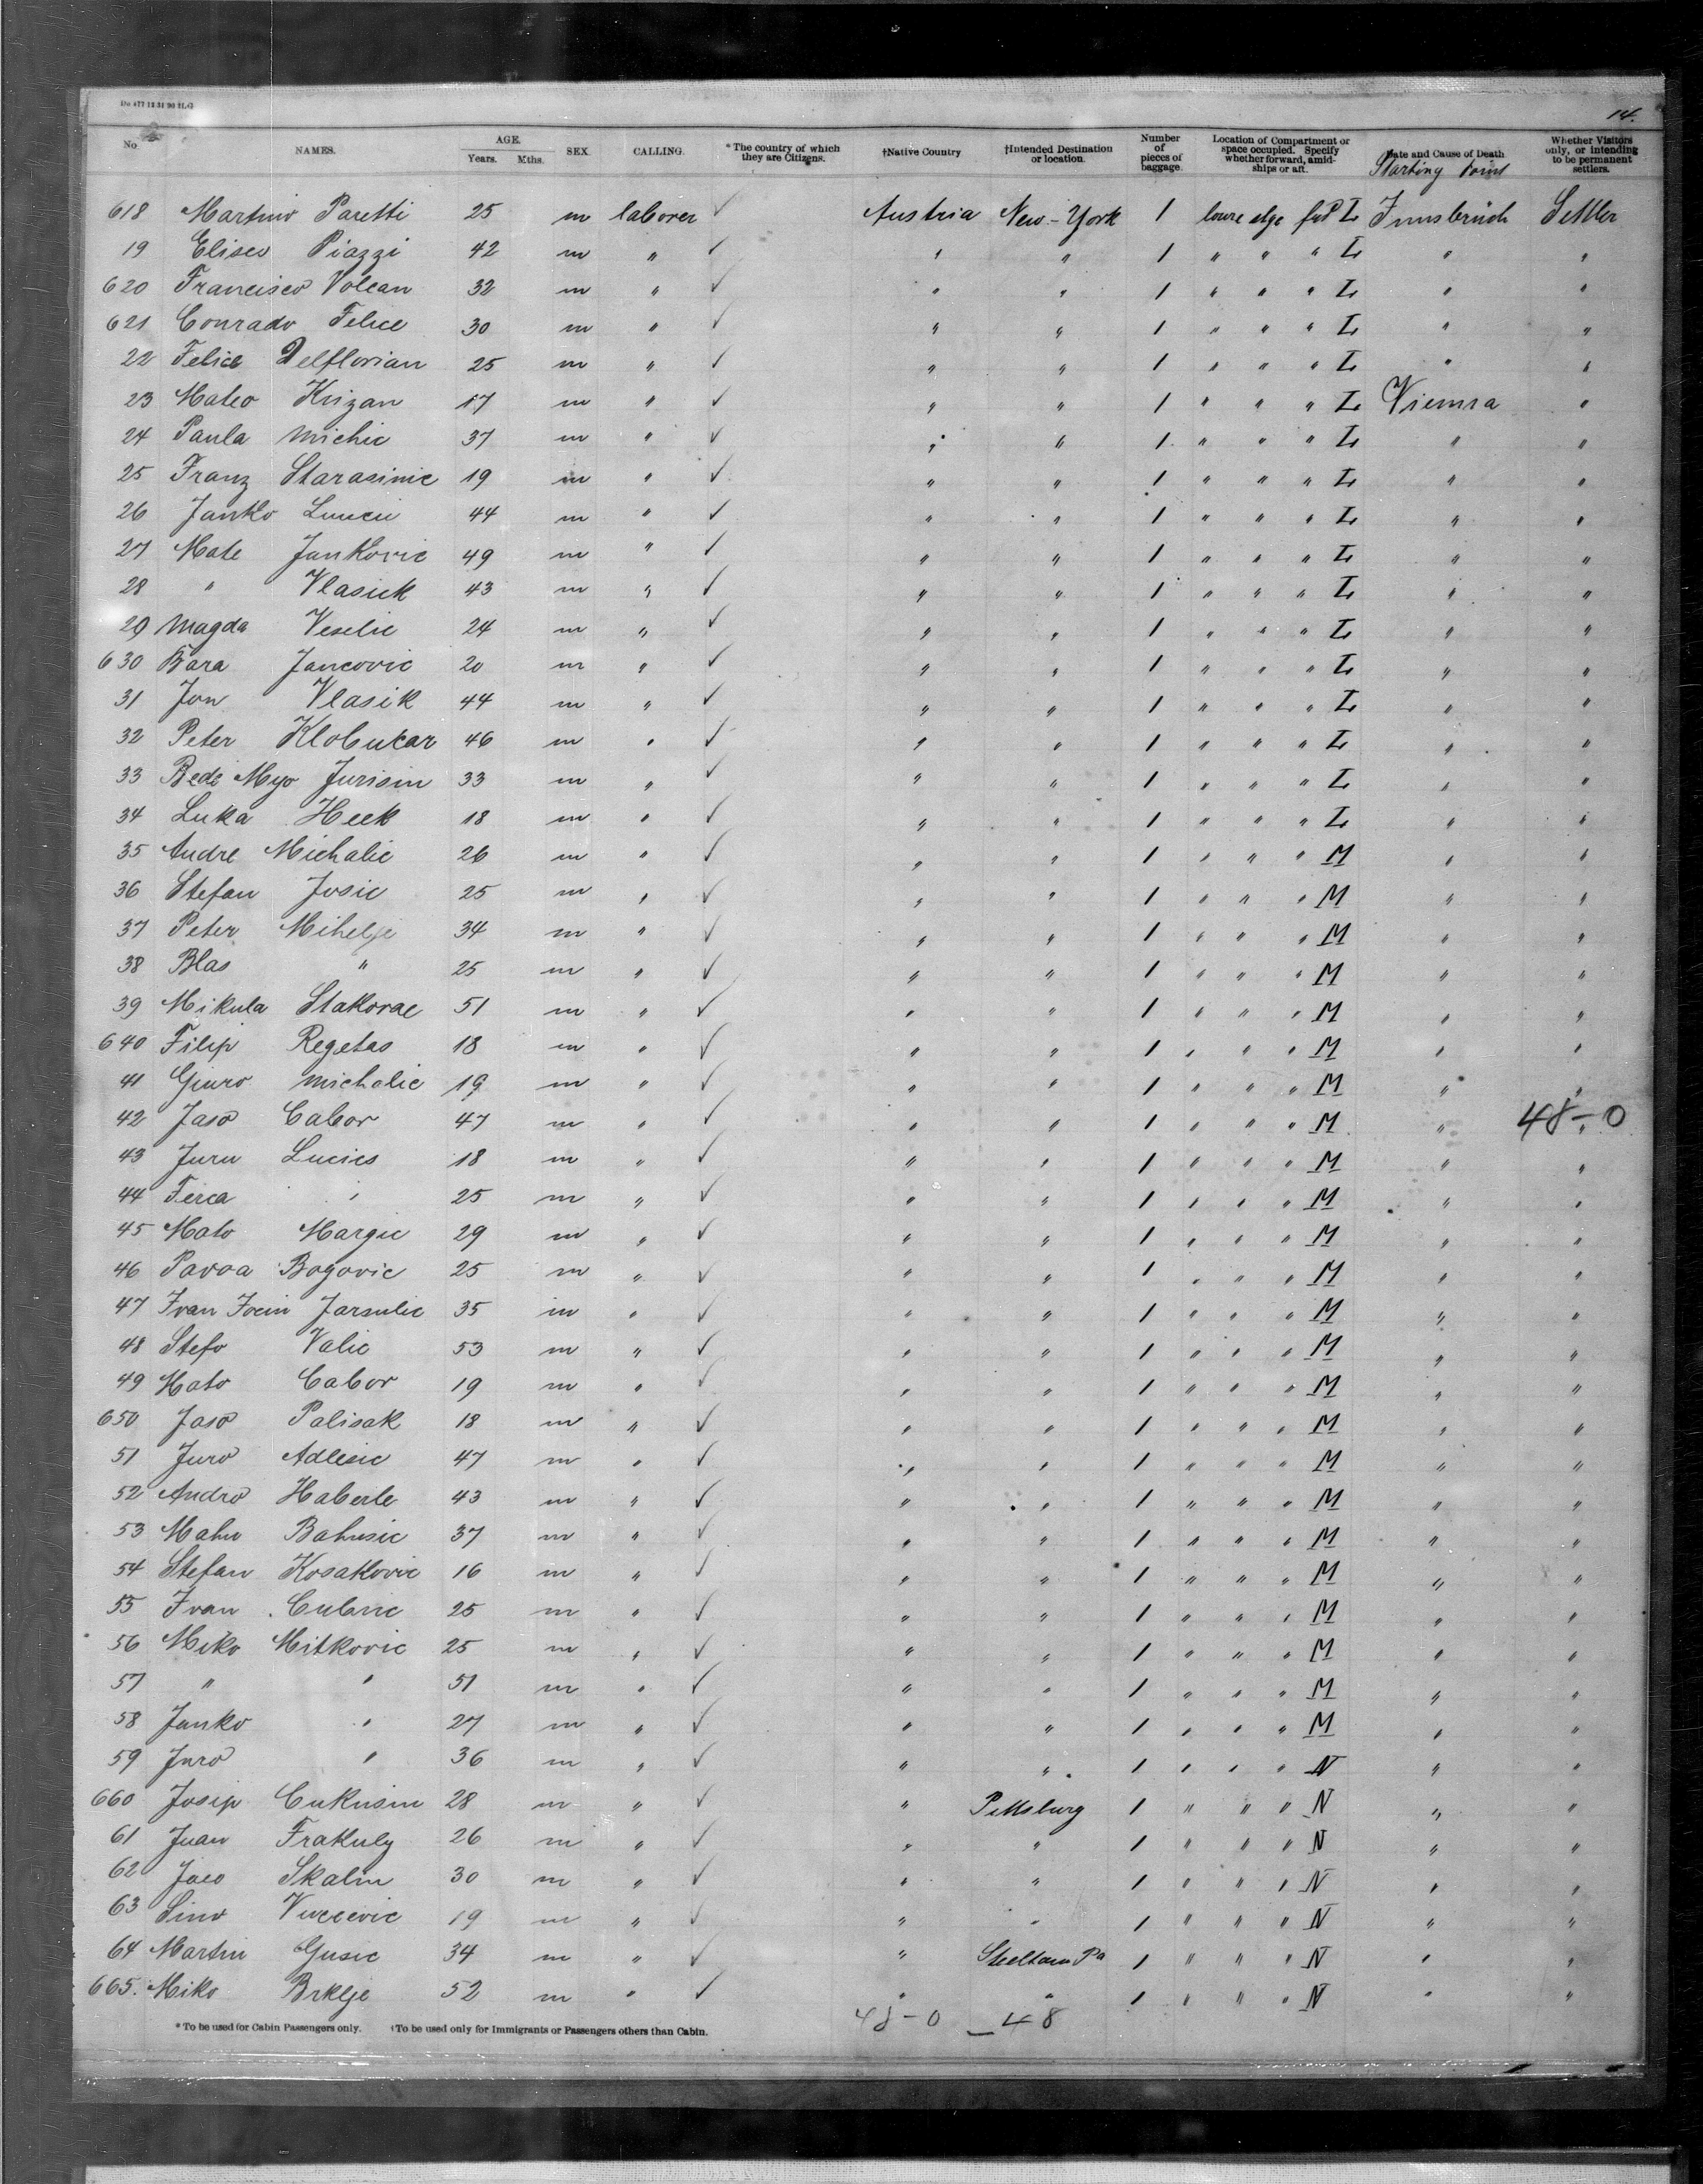 14.
No NAMES. AGE. Years. Mths. SEX CALLING. *The country of which they are Citizens. †Native Country †Intended Destination or location. Number of pieces of baggage. Location of Compartment or space occupied. Specify whether forward, amidships or aft. Date and Cause of Death Starting Point Whether Visitors only, or intending to be permanent settlers.
618 Martino Paretti 25 m laborer ✓ Austria New-York 1 L Innsbruck Settler
19 Eliseo Piazzi 42 m " ✓ " " 1 " " " L " "
620 Francisco Volcan 32 m " ✓ " " 1 " " " L " "
621 Conrado Felice 30 m " ✓ " " 1 " " " L " "
22 Felice Delflorian 25 m " ✓ " " 1 " " " L " "
23 Mateo Krizan 17 m " ✓ " " 1 " " " L Vienna "
24 Paula Michic 37 m " ✓ " " 1 " " " L " "
25 Franz Starasinic 19 m " ✓ " " 1 " " " L " "
26 Janko 44 m " ✓ " " 1 " " " L " "
27 Mate Jankovic 49 m " ✓ " " 1 " " " L " "
28 " Vlasick 43 m " ✓ " " 1 " " " L " "
29 Magda Veselic 24 m " ✓ " " 1 " " " L " "
630 Bara Jancovic 20 m " ✓ " " 1 " " " L " "
31 Jon Vlasik 44 m " ✓ " " 1 " " " L " "
32 Peter Klobucar 46 m " ✓ " " 1 " " " L " "
33 Bede Myo Jurisin 33 m " ✓ " " 1 " " " L " "
34 Luka Heck 18 m " ✓ " " 1 " " " L " "
35 Andre Michalic 26 m " ✓ " " 1 " " " M " "
36 Stefan Josic 25 m " ✓ " " 1 " " " M " "
37 Peter Mihelje 34 m " ✓ " " 1 " " " M " "
38 Blas " 25 m " ✓ " " 1 " " " M " "
39 Mikula Stakorac 51 m " ✓ " " 1 " " " M " "
640 Filip Regetas 18 m " ✓ " " 1 " " " M " "
41 Giuro Michalic 19 m " ✓ " " 1 " " " M " "
42 Jaso Cabor 47 m " ✓ " " 1 " " " M " " 48-0
43 Juru Lucics 18 m " ✓ " " 1 " " " M " "
44 Ferca " 25 m " ✓ " " 1 " " " M " "
45 Mato Margic 29 m " ✓ " " 1 " " " M " "
46 Pavoa Bogovic 25 m " ✓ " " 1 " " " M " "
47 Ivan Jarsulic 35 m " ✓ " " 1 " " " M " "
48 Stefo Valic 53 m " ✓ " " 1 " " " M " "
49 Mato Cabor 19 m " ✓ " " 1 " " " M " "
650 Jaso Palisak 18 m " ✓ " " 1 " " " M " "
51 Juro Adlesic 47 m " ✓ " " 1 " " " M " "
52 Andro Haberle 43 m " ✓ " " 1 " " " M " "
53 Bahusic 37 m " ✓ " " 1 " " " M " "
54 Stefan Kosakovic 16 m " ✓ " " 1 " " " M " "
55 Ivan 25 m " ✓ " " 1 " " " M " "
56 Miko Mitkovic 25 m " ✓ " " 1 " " " M " "
57 " " 51 m " ✓ " " 1 " " " M " "
58 Janko " 27 m " ✓ " " 1 " " " M " "
59 Juro " 36 m " ✓ " " 1 " " " N " "
660 Josip Cukusin 28 m " ✓ " Pittsburg 1 " " " N " "
61 Juan Frakuly 26 m " ✓ " " 1 " " " N " "
62 Jaco Skalin 30 m " ✓ " " 1 " " " N " "
63 Simo 19 m " ✓ " " 1 " " " N " "
64 Martin Gusic 34 m " ✓ " Steeltown Pa 1 " " " N " "
665. Miko Brklje 52 m " ✓ " " 1 " " " N " "
48-0 - 48
*To be used for Cabin Passengers only. †To be used only for Immigrants or Passengers others than Cabin.